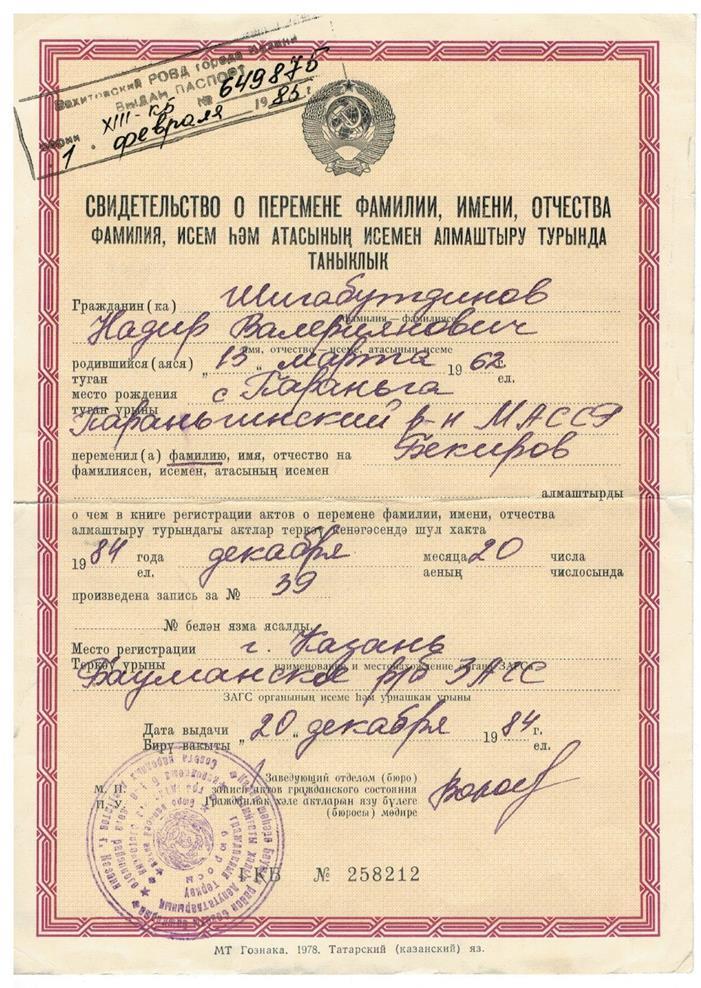 Вахитовский РОВД города Казани
ВЫДАН ПАСПОРТ
серии XIII-КБ № 649875
1 февраля 1985 г.
СВИДЕТЕЛЬСТВО О ПЕРЕМЕНЕ ФАМИЛИИ, ИМЕНИ, ОТЧЕСТВА
ФАМИЛИЯ, ИСЕМ ҺӘМ АТАСЫНЫҢ ИСЕМЕН АЛМАШТЫРУ ТУРЫНДА
ТАНЫКЛЫК
Гражданин(ка) Шигабутдинов
фамилия — фамилиясе
Надир Валериянович
имя, отчество — исеме, атасының исеме
родившийся(аяся) „13 „ марта 1962 г.
туган ел.
место рождения с Параньга
туган урыны
Параньгинский р-н МАССР
переменил(а) фамилию, имя, отчество на Бекиров
фамилиясен, исемен, атасының исемен
алмаштырды
о чем в книге регистрации актов о перемене фамилии, имени, отчества
алмаштыру турындагы актлар теркәү кенәгәсендә шул хакта
1984 года декабря месяца 20 числа
ел. аеның числосында
произведена запись за № 39
№ белән язма ясалды.
Место регистрации г. Казань
Теркәү урыны наименование и местонахождение органа ЗАГСа
Бауманское р/б ЗАГС
ЗАГС органының исеме һәм урнашкан урыны
Дата выдачи „20 „ декабря 1984 г.
Бирү вакыты ел.
М. П. Заведующий отделом (бюро)
П. У. записи актов гражданского состояния
Гражданлык хәле актларын язу бүлеге
(бюросы) мөдире
I-КБ № 258212
МТ Гознака. 1978. Татарский (казанский) яз.